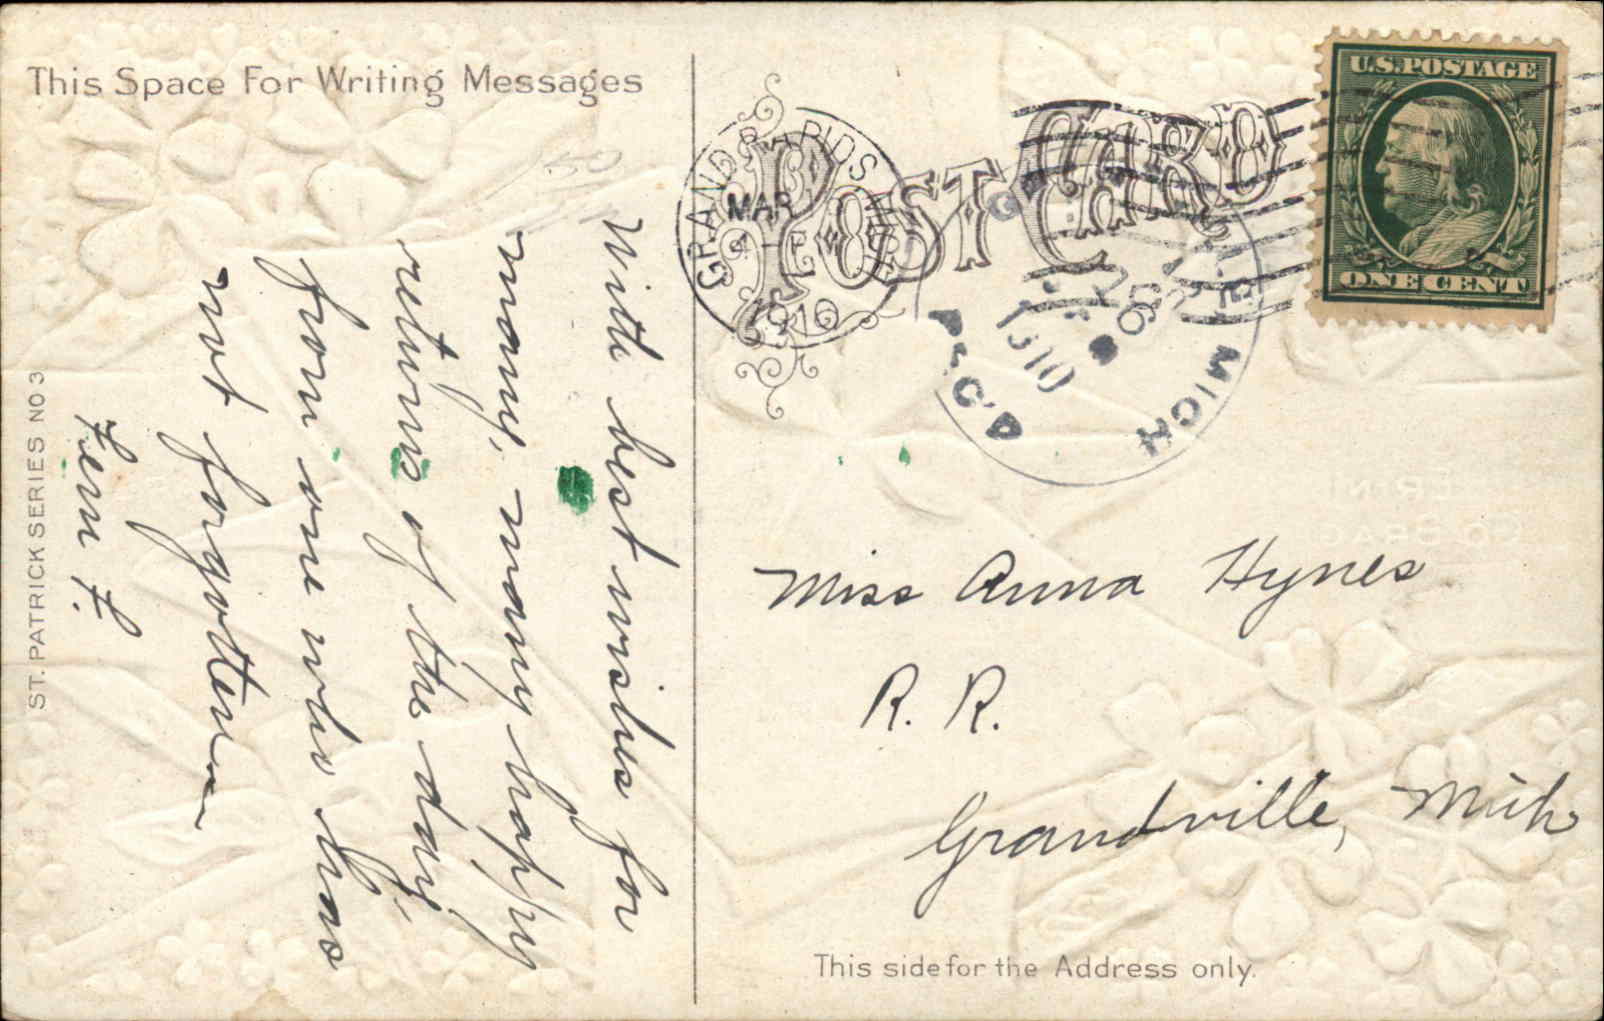 This Space For Writing Messages
150
With best wishes for
many, many happy
returns of the day,
from one who has
not forgotten
Fern F.
ST. PATRICK SERIES NO 3
POST CARD
GRAND RAPIDS MICH
MAR
1910
MICH
26
1910
U.S. POSTAGE
ONE CENT
Miss Anna Hynes
R. R.
Grandville, Mich
This side for the Address only.